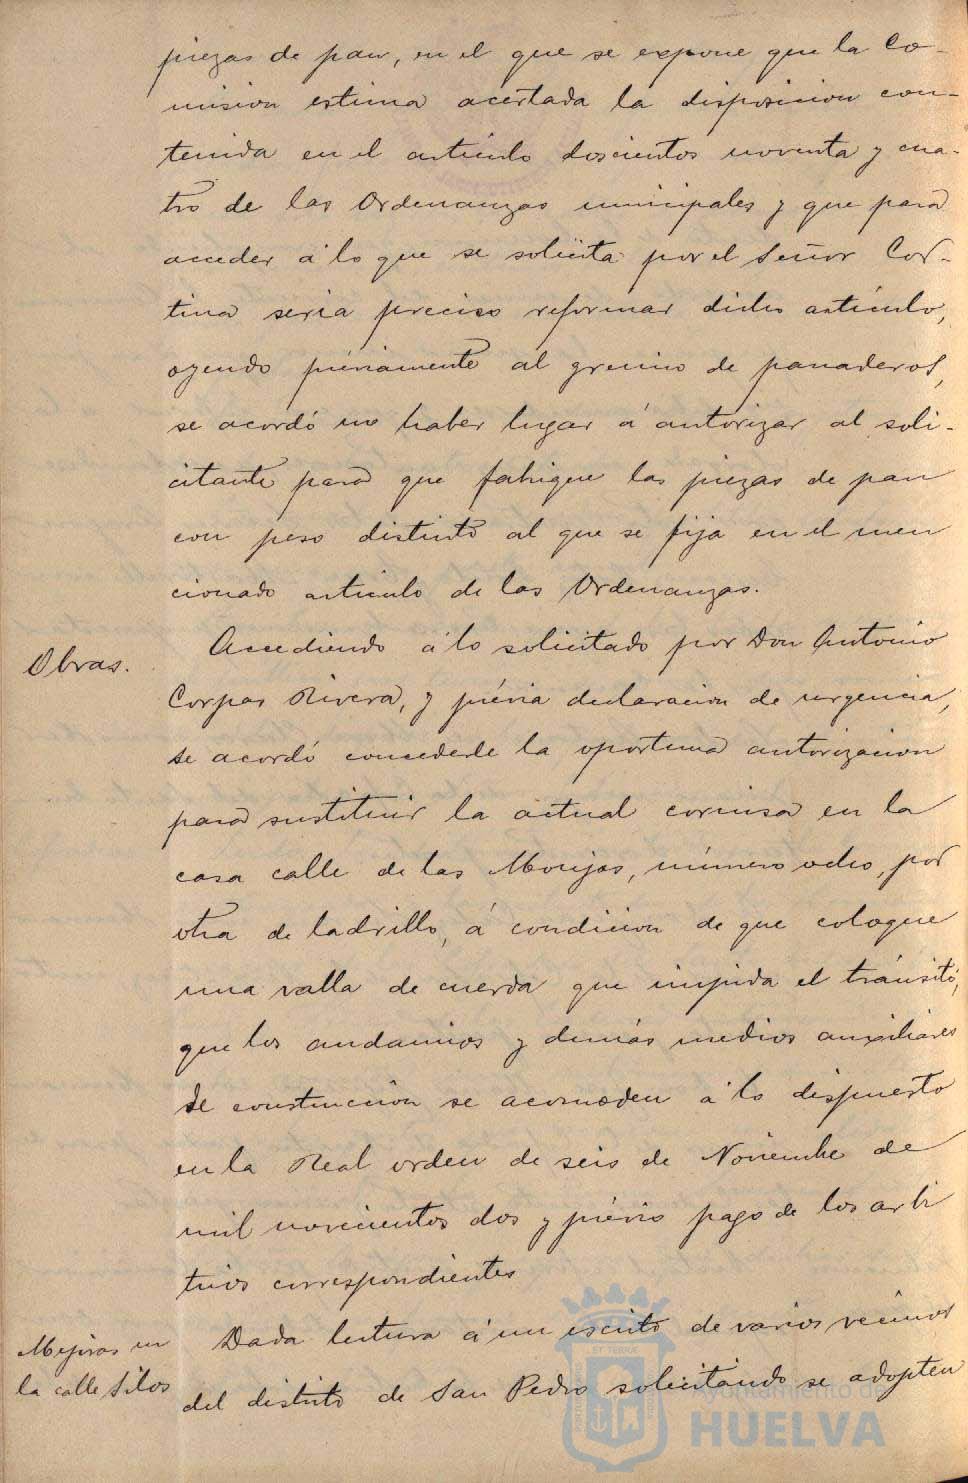 piezas de pan, en el que se expone que la Co-
mision estima acertada la disposicion con-
tenida en el artículo doscientos noventa y cua-
tro de las Ordenanzas municipales y que para
acceder á lo que se solicita por el Señor Cor-
tina seria preciso reformar dicho artículo,
oyendo préviamente al gremio de panaderos,
se acordó no haber lugar á autorizar al soli-
citante para que fabrique las piezas de pan
con peso distinto al que se fija en el men
cionado artículo de las Ordenanzas.
Obras.
Accediendo á lo solicitado por Don Antonio
Corpas Rivera, y prévia declaracion de urgencia,
se acordó concederle la oportuna autorizacion
para sustituir la actual cornisa en la
casa calle de las Monjas, número ocho, por
otra de ladrillo, á condicion de que coloque
una valla de cuerda que impida el tránsito,
que los andamios y demás medios auxiliares
de construccion se acomoden á lo dispuesto
en la Real orden de seis de Noviembre de
mil novecientos dos y prévio pago de los arbi
trios correspondientes
Mejoras en
la calle Silos
Dada lectura á un escrito de varios vecinos
del distrito de San Pedro solicitando se adopten
Ayuntamiento de
HUELVA